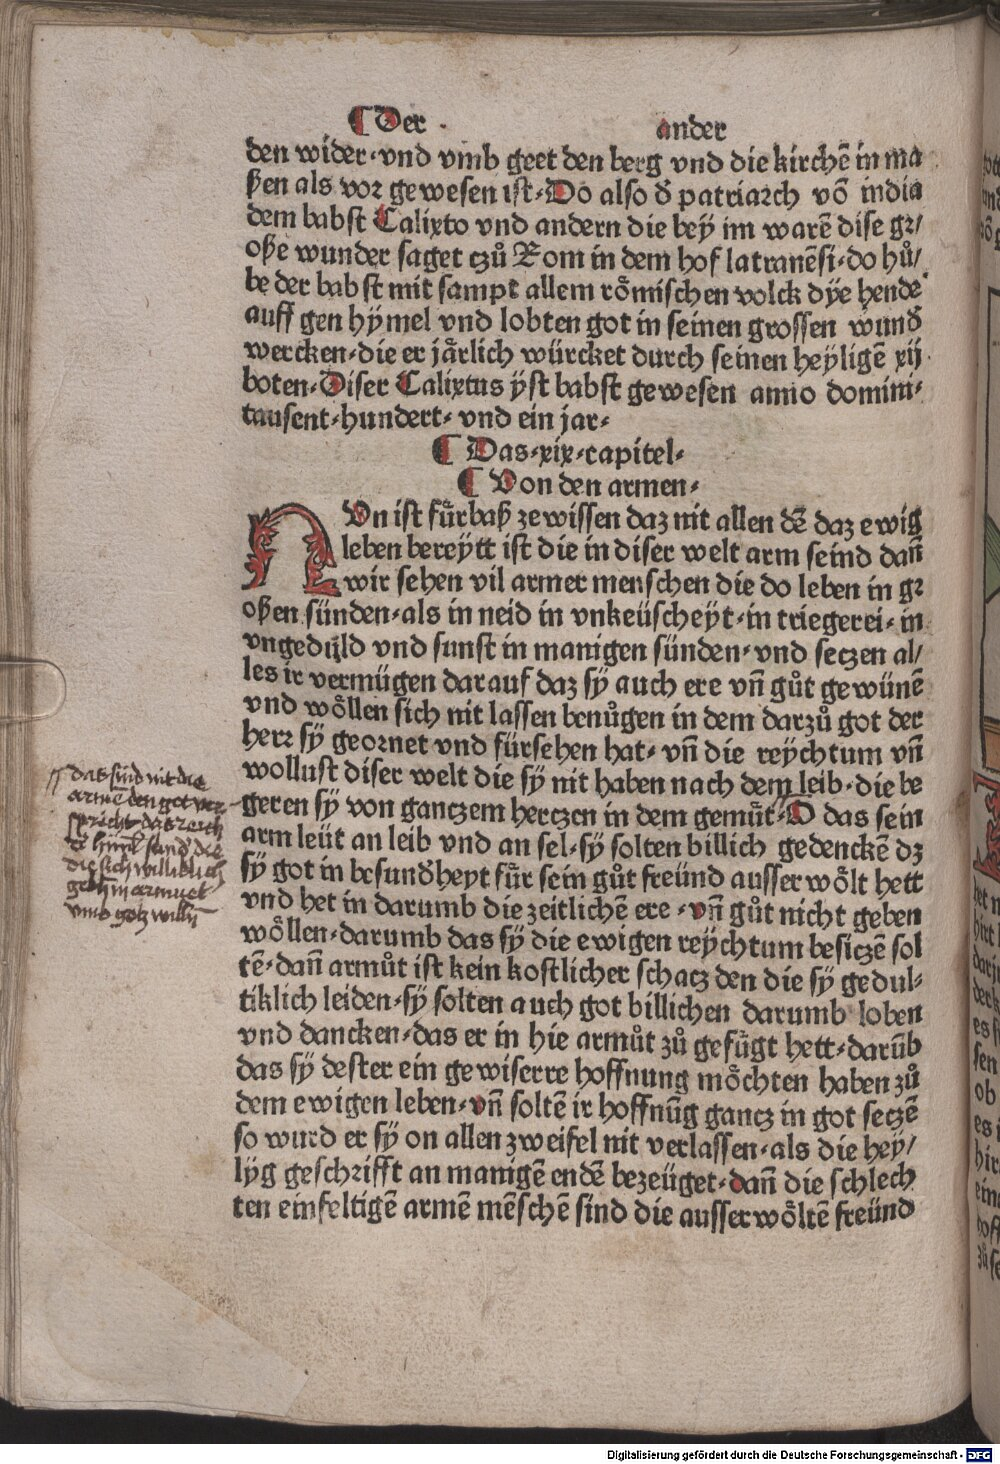 ¶ Der ander
den wider·vnd vmb geet den berg vnd die kirchē in ma
ßen als vor gewesen ist·Do also d̕ patriarch vō india
dem babst Calixto vnd andern die bey im warē dise gr/
oße wunder saget czů Rom in dem hof latranēsi·do hů/
be der babst mit sampt allem rőmischen volck dÿe hende
auff gen hÿmel vnd lobten got in seinen grossen wund̕
wercken·die er jårlich würcket durch seinen heÿligē xij
boten·Diser Calixtus ÿst babst gewesen anno domini·
tausent·hundert·vnd ein jar·
¶ Das·xix·capitel·
¶ Von den armen·
NVn ist fürbaß ze wissen daz nit allen dē daz ewig
leben bereÿtt ist die in diser welt arm seind dañ
wir sehen vil armer menschen die do leben in gr
oßen sünden·als in neid in vnkeüscheÿt·in triegerei·in
vngedüld vnd sunst in manigen sünden·vnd seczen al/
les ir vermügen darauf daz sÿ auch ere vñ gůt gewünē
vnd wőllen sich nit lassen benůgen in dem darzů got der
herr sÿ geornet vnd fürsehen hat·vñ die reÿchtum vñ
wollust diser welt die sÿ nit haben nach dem leib·die be
geren sÿ von ganczem herczen in dem gemüt·O das sein
arm leüt an leib vnd an sel·sÿ solten billich gedenckē dz
sÿ got in besund̕heyt für sein gůt freünd ausserwőlt hett
vnd het in darumb die zeitlichē ere·vñ gůt nicht geben
wőllen·darumb das sÿ die ewigen reÿchtum besiczē sol
tē·dañ armůt ist kein kostlicher schacz den die sÿ gedul·
tiklich leiden·sÿ solten auch got billichen darumb loben
vnd dancken·das er in hie armůt zů gefügt hett·darūb
das sÿ dester ein gewiserre hoffnung mőchten haben zů
dem ewigen leben·vñ soltē ir hoffnūg gancz in got seczē
so wurd er sÿ on allen zweifel nit verlassen·als die heÿ/
lÿg geschrifft an manigē endē bezeüget·dañ die schlech
ten einfeltigē armē mēschē sind die ausserwőltē freünd
das sind nit die
armē den got ver
spricht das reich
d̕ himel sund̕ die
die sich willicklich
gebn̄ in armuet
vmb gotz willn̄
Digitalisierung gefördert durch die Deutsche Forschungsgemeinschaft - DFG